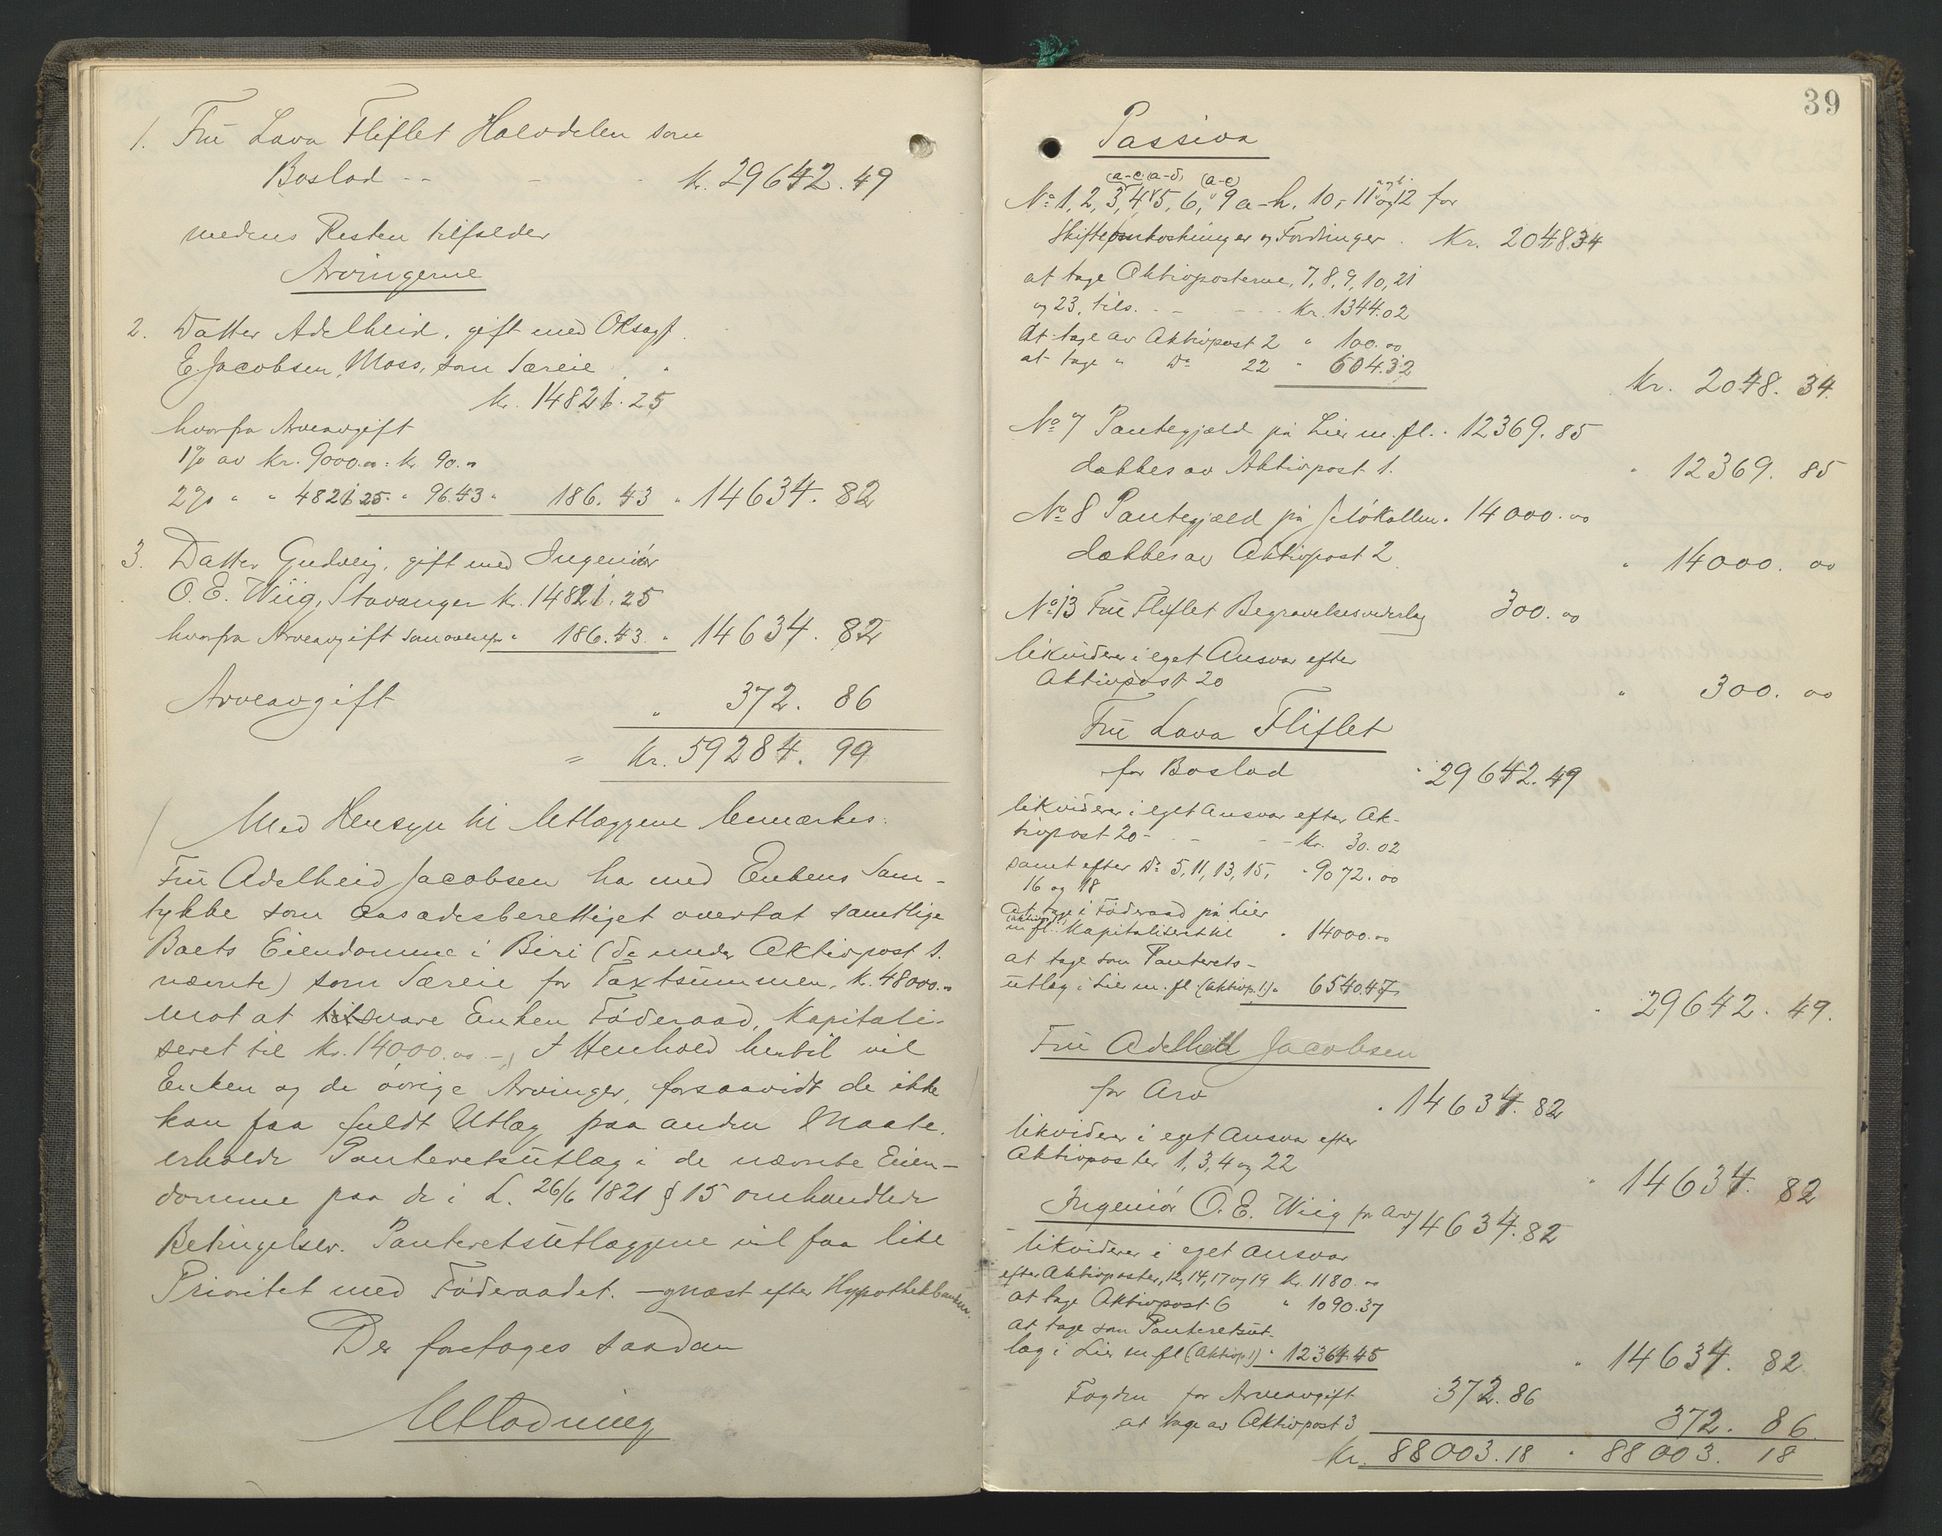 1. Fru Lava Fliflet Halvdelen som
Boslod -- - kr. 29642.49
medens Resten tilfalder
Arvingerne
2. Datter Adelheid, gift med OKsagf.
E. Jacobsen, Moss, som Særeie
kr. 14821.25
hvorfra Arveavgift
1% av kr. 9000.00: kr. 90.00
2% " " 4821.25 " 96.43 " 186.43 " 14634.82
3. Datter Gudveig, gift med Ingeniør
O. E. Wiig, Stavanger kr. 14821.25
hvorfra Arveavgift som ovenfor " 186.43 " 14634.82
Arveavgift " 372.86
= Kr. 59284.99
Med Hensyn til Utlæggene bemærkes:
Fru Adelheid Jacobsen har med Enkens Sam-
tykke som aasædesberettiget overtat samtlige
Boets Eiendomme i Biri (de under Aktivpost 1.
nævnte) som Særeie for Taxtsummen, kr. 48000.00
mot at svare Enken Føderaad, kapitali-
seret til kr. 14000.00 -, I Henhold hertil vil
Enken og de øvrige Arvinger, forsaavidt de ikke
kan faa fuldt Utlæg paa anden Maate,
erholde Panteretsutlæg i de nævnte Eien-
domme paa de i L. 26/6 1821 § 15 omhandlede
Betingelser. Panteretsutlæggene vil faa like
Prioritet med Føderaadet. - næst efter Hypothekbanken.
Der foretages saadan
Utlodning
39
Passiva
(a-c) (a-d) (a-c)
No 1, 2, 3, 4, 5, 6, 9 a-h, 10, 11 og 12 for
Skifteomkostninger og Fordringer . Kr. 2048.34
at tage Aktivposterne, 7, 8, 9, 10, 21
og 23, tils. - - - kr. 1344.02
At tage av Aktivpost 2 " 100.00
at tage " Do 22 " 604.32
kr. 2048.34.
No 7 Pantegjæld på Lier m.fl. . 12369.85
dækkes av Aktivpost 1. " 12369.85
No 8 Pantegjæld på Jeløkollen . 14000.00
dækkes av Aktivpost 2. " 14000.00
No 13 Fru Fliflet Begravelsesvederlag 300.00
likviderer i eget Ansvar efter
Aktivpost 20 " 300.00
Fru Lava Fliflet
for Boslod " 29642.49
likviderer i eget Ansvar efter Ak-
tivpost 20 - - - kr. 30.02
samt efter Do 5, 11, 13, 15, " 9072.00
16 og 18
at tage i Føderaad på Lier
m.fl. (aktivp. 1) kapitaliseret til " 14000.00
at tage som Panterets-
utlæg i Lier m.fl. (aktivp. 1) " 6540.47
" 29642.49.
Fru Adelheid Jacobsen
for Arv " 14634.82
likviderer i eget Ansvar efter
Aktivposter 1, 3, 4 og 22
" 14634.82
Ingeniør O. E. Wiig for Arv 14634.82
likviderer i eget Ansvar
efter Aktivposter, 12, 14, 17 og 19 kr. 1180.00
at tage Aktivpost 6 " 1090.37
at tage som Panteretsut-
læg i Lier m.fl. (Aktivp. 1) " 12364.45
" 14634.82
Fogden for Arveavgift 372.86
at tage av Aktivpost 3 372.86.
Kr. 88003.18 " 88003.18